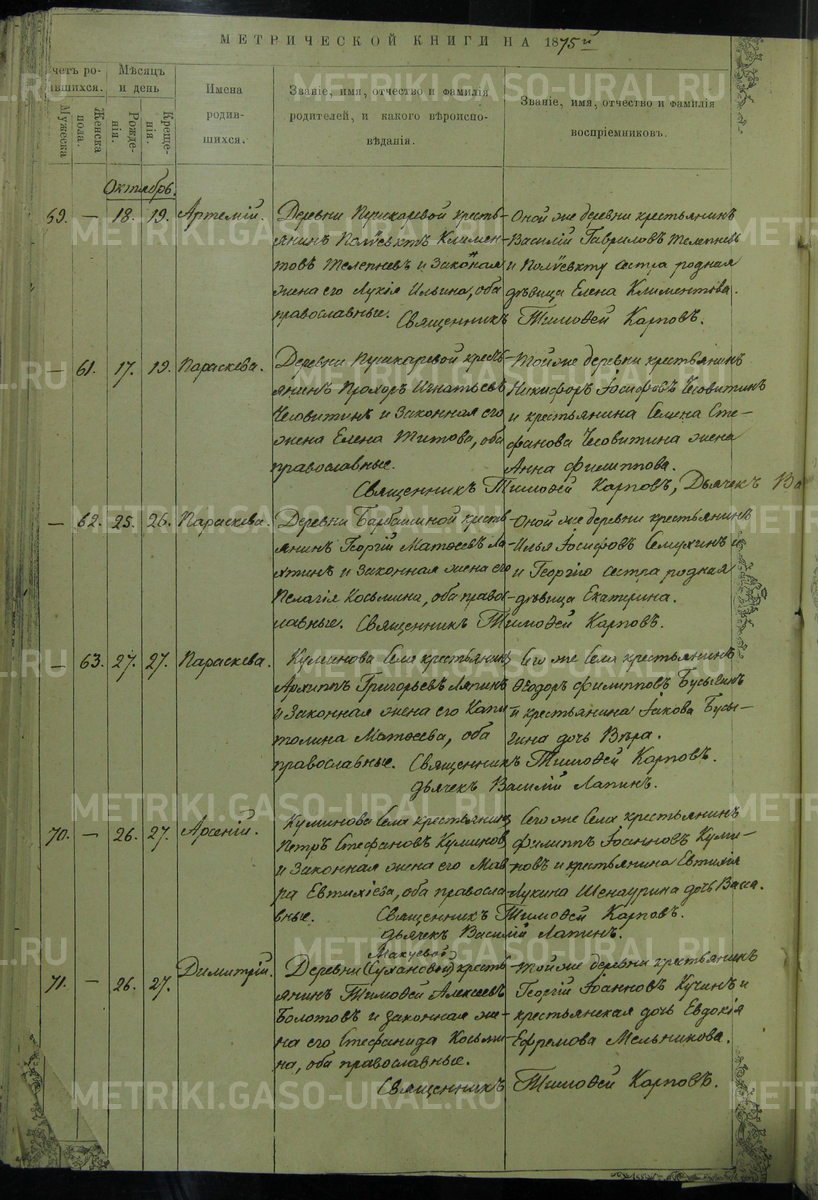 МЕТРИЧЕСКОЙ КНИГИ НА 1875й
четъ ро-
ившихся.
Мужеска
Женска
пола.
Мѣсяцъ
и день
Рожде-
нія.
Креще-
нія.
Имена
родив-
шихся.
Званіе, имя, отчество и фамилія
родителей, и какого вѣроиспо-
вѣданія.
Званіе, имя, отчество и фамилія
воспріемниковъ.
Октябрь.
69. — 18. 19. Артемій.
Деревни Пушкаревой кресть-
янинъ Поліевктъ Климен-
товъ Телепневъ и Законная
жена его Лукія Ильина, оба
православные.
Оной же деревни крестьянинъ
Василій Гавриловъ Телепневъ
и Поліевкту сестра родная
дѣвица Елена Климентова.
Священникъ Тимоѳей Карповъ.
— 61. 17. 19. Параскева.
Деревни Пушкаревой кресть-
янинъ Прохоръ Игнатьевъ
Чесовитинъ и Законная его
жена Елена Титова, оба
православные.
Тойже деревни крестьянинъ
Никифоръ Іосифовъ Чесовитинъ
и крестьянина Семена Сте-
фанова Чесовитина жена
Анна Филиппова.
Священникъ Тимоѳей Карповъ, Дьячекъ Ва
— 62. 25. 26. Параскева.
Деревни Барбашиной кресть-
янинъ Георгій Матѳеевъ Ла-
птинъ и Законная жена его
Пелагія Косьмина, оба право-
славные.
Оной же деревни крестьянинъ
Илья Іосифовъ Семухинъ
и Георгію сестра родная
дѣвица Екатерина.
Священникъ Тимоѳей Карповъ.
— 63. 27. 27. Параскева.
Куминова Села крестьянинъ
Архиппъ Григорьевъ Ляпинъ
и Законная жена его Капи-
толина Матѳеева, оба
православные.
Сего же Села крестьянинъ
Ѳеодоръ Филипповъ Бусыгинъ
и крестьянина Іакова Бусы-
гина дочь Вѣра.
Священникъ Тимоѳей Карповъ.
дьячекъ Василій Лапинъ.
70. — 26. 27. Арсеній.
Куминова Села крестьянинъ
Петръ Стефановъ Куминовъ
и Законная жена его Мав-
ра Евтихіева, оба правосла-
вные.
Сего же Села крестьянинъ
Филиппъ Іоанновъ Куми-
новъ и крестьянина Евтихія
Лукина Шенаурина дочь Васса.
Священникъ Тимоѳей Карповъ.
дьячекъ Василій Лапинъ.
71. — 26. 27. Димитрій.
Макуевой
Деревни (Сухановой) кресть-
янинъ Тимоѳей Алексеевъ
Болотовъ и законная же-
на его Стефанида Косьми-
на, оба православные.
Тойже деревни крестьянинъ
Георгій Іоанновъ Кучинъ и
крестьянская дочь Евдокія
Ефремова Мельникова.
Священникъ Тимоѳей Карповъ.
METRIKI.GASO-URAL.RU